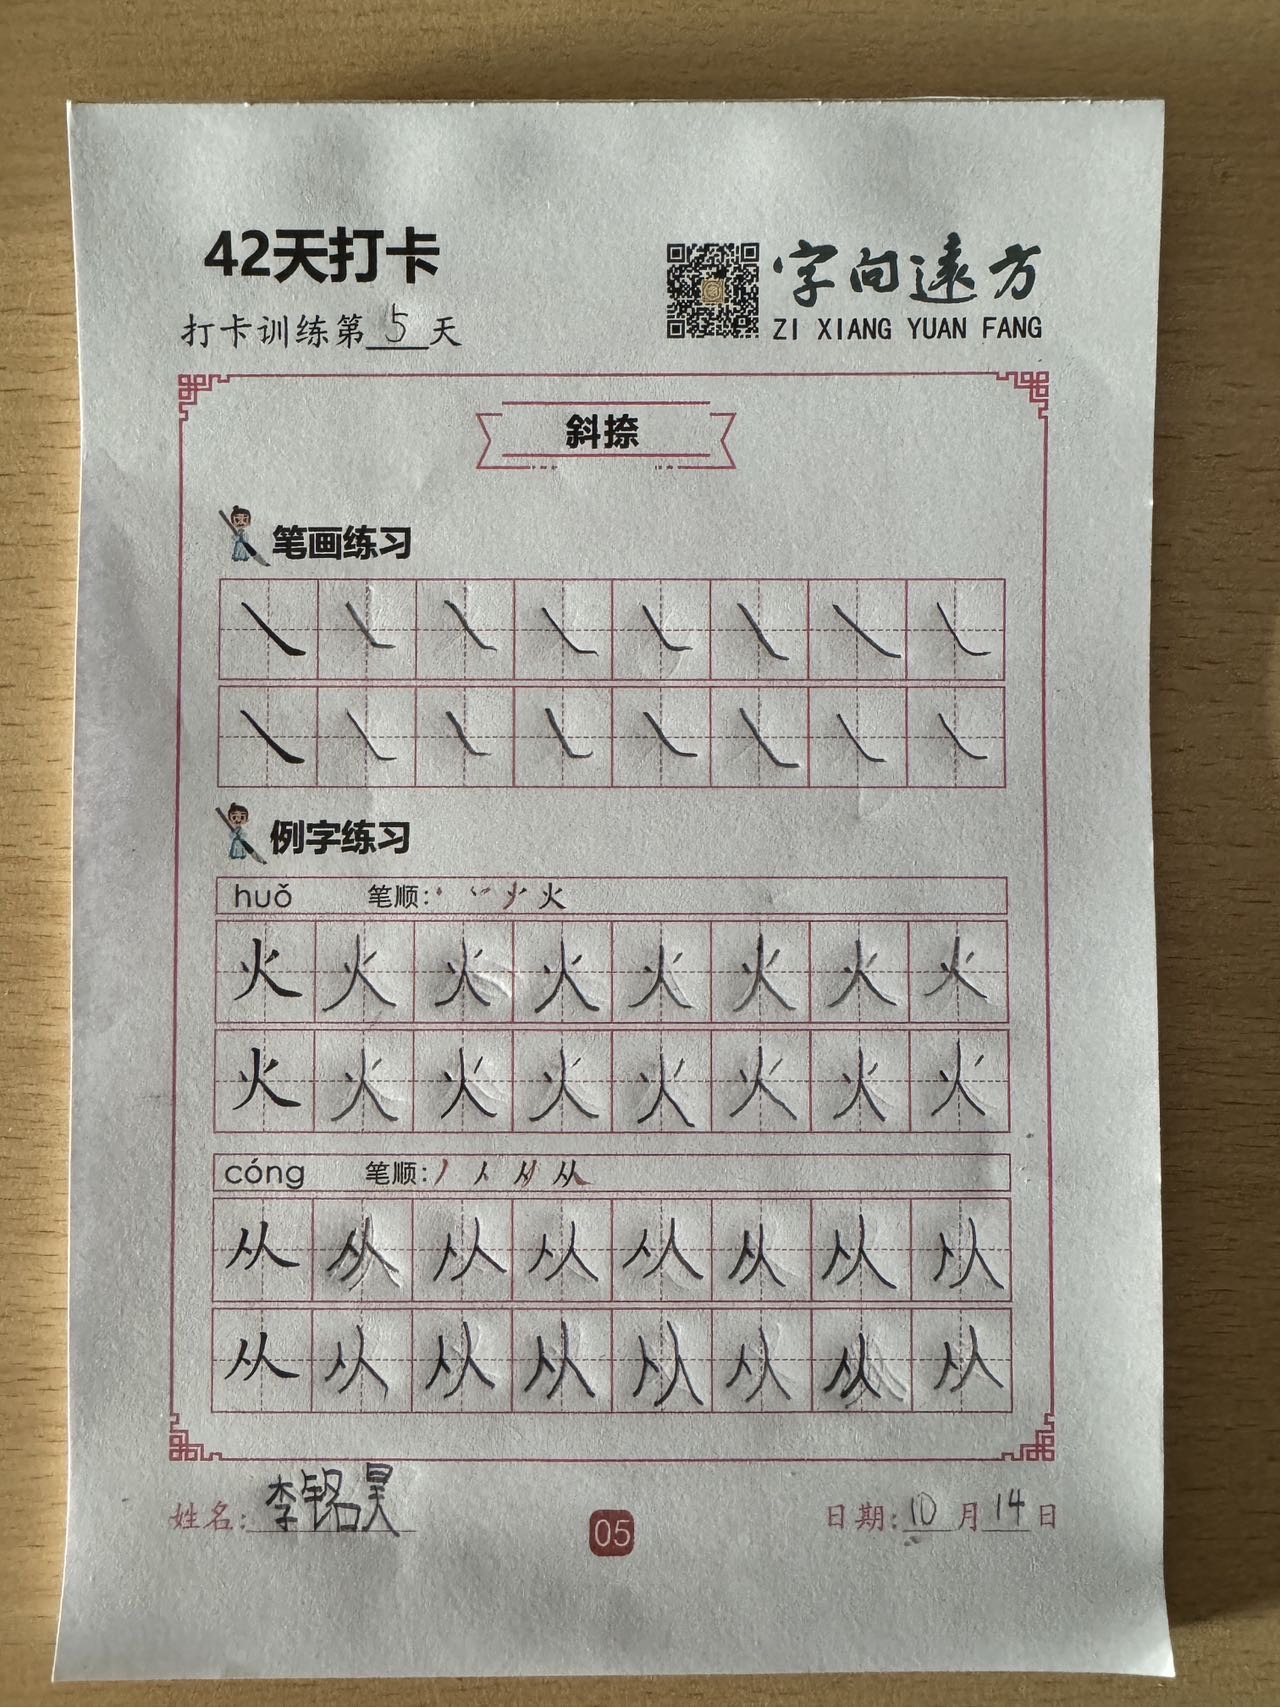 42天打卡
字向遠方
打卡训练第5天
ZI XIANG YUAN FANG
斜捺
笔画练习
例字练习
huǒ 笔顺: 火
火 火 火 火 火 火 火 火
火 火 火 火 火 火 火 火
cóng 笔顺: 从
从 从 从 从 从 从 从 从
从 从 从 从 从 从 从 从
姓名: 李铭昊
05
日期: 10月14日